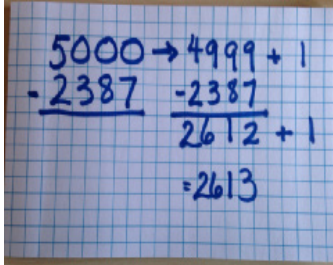 5000 → 4999 + 1
- 2387 -2387
2612 + 1
=2613